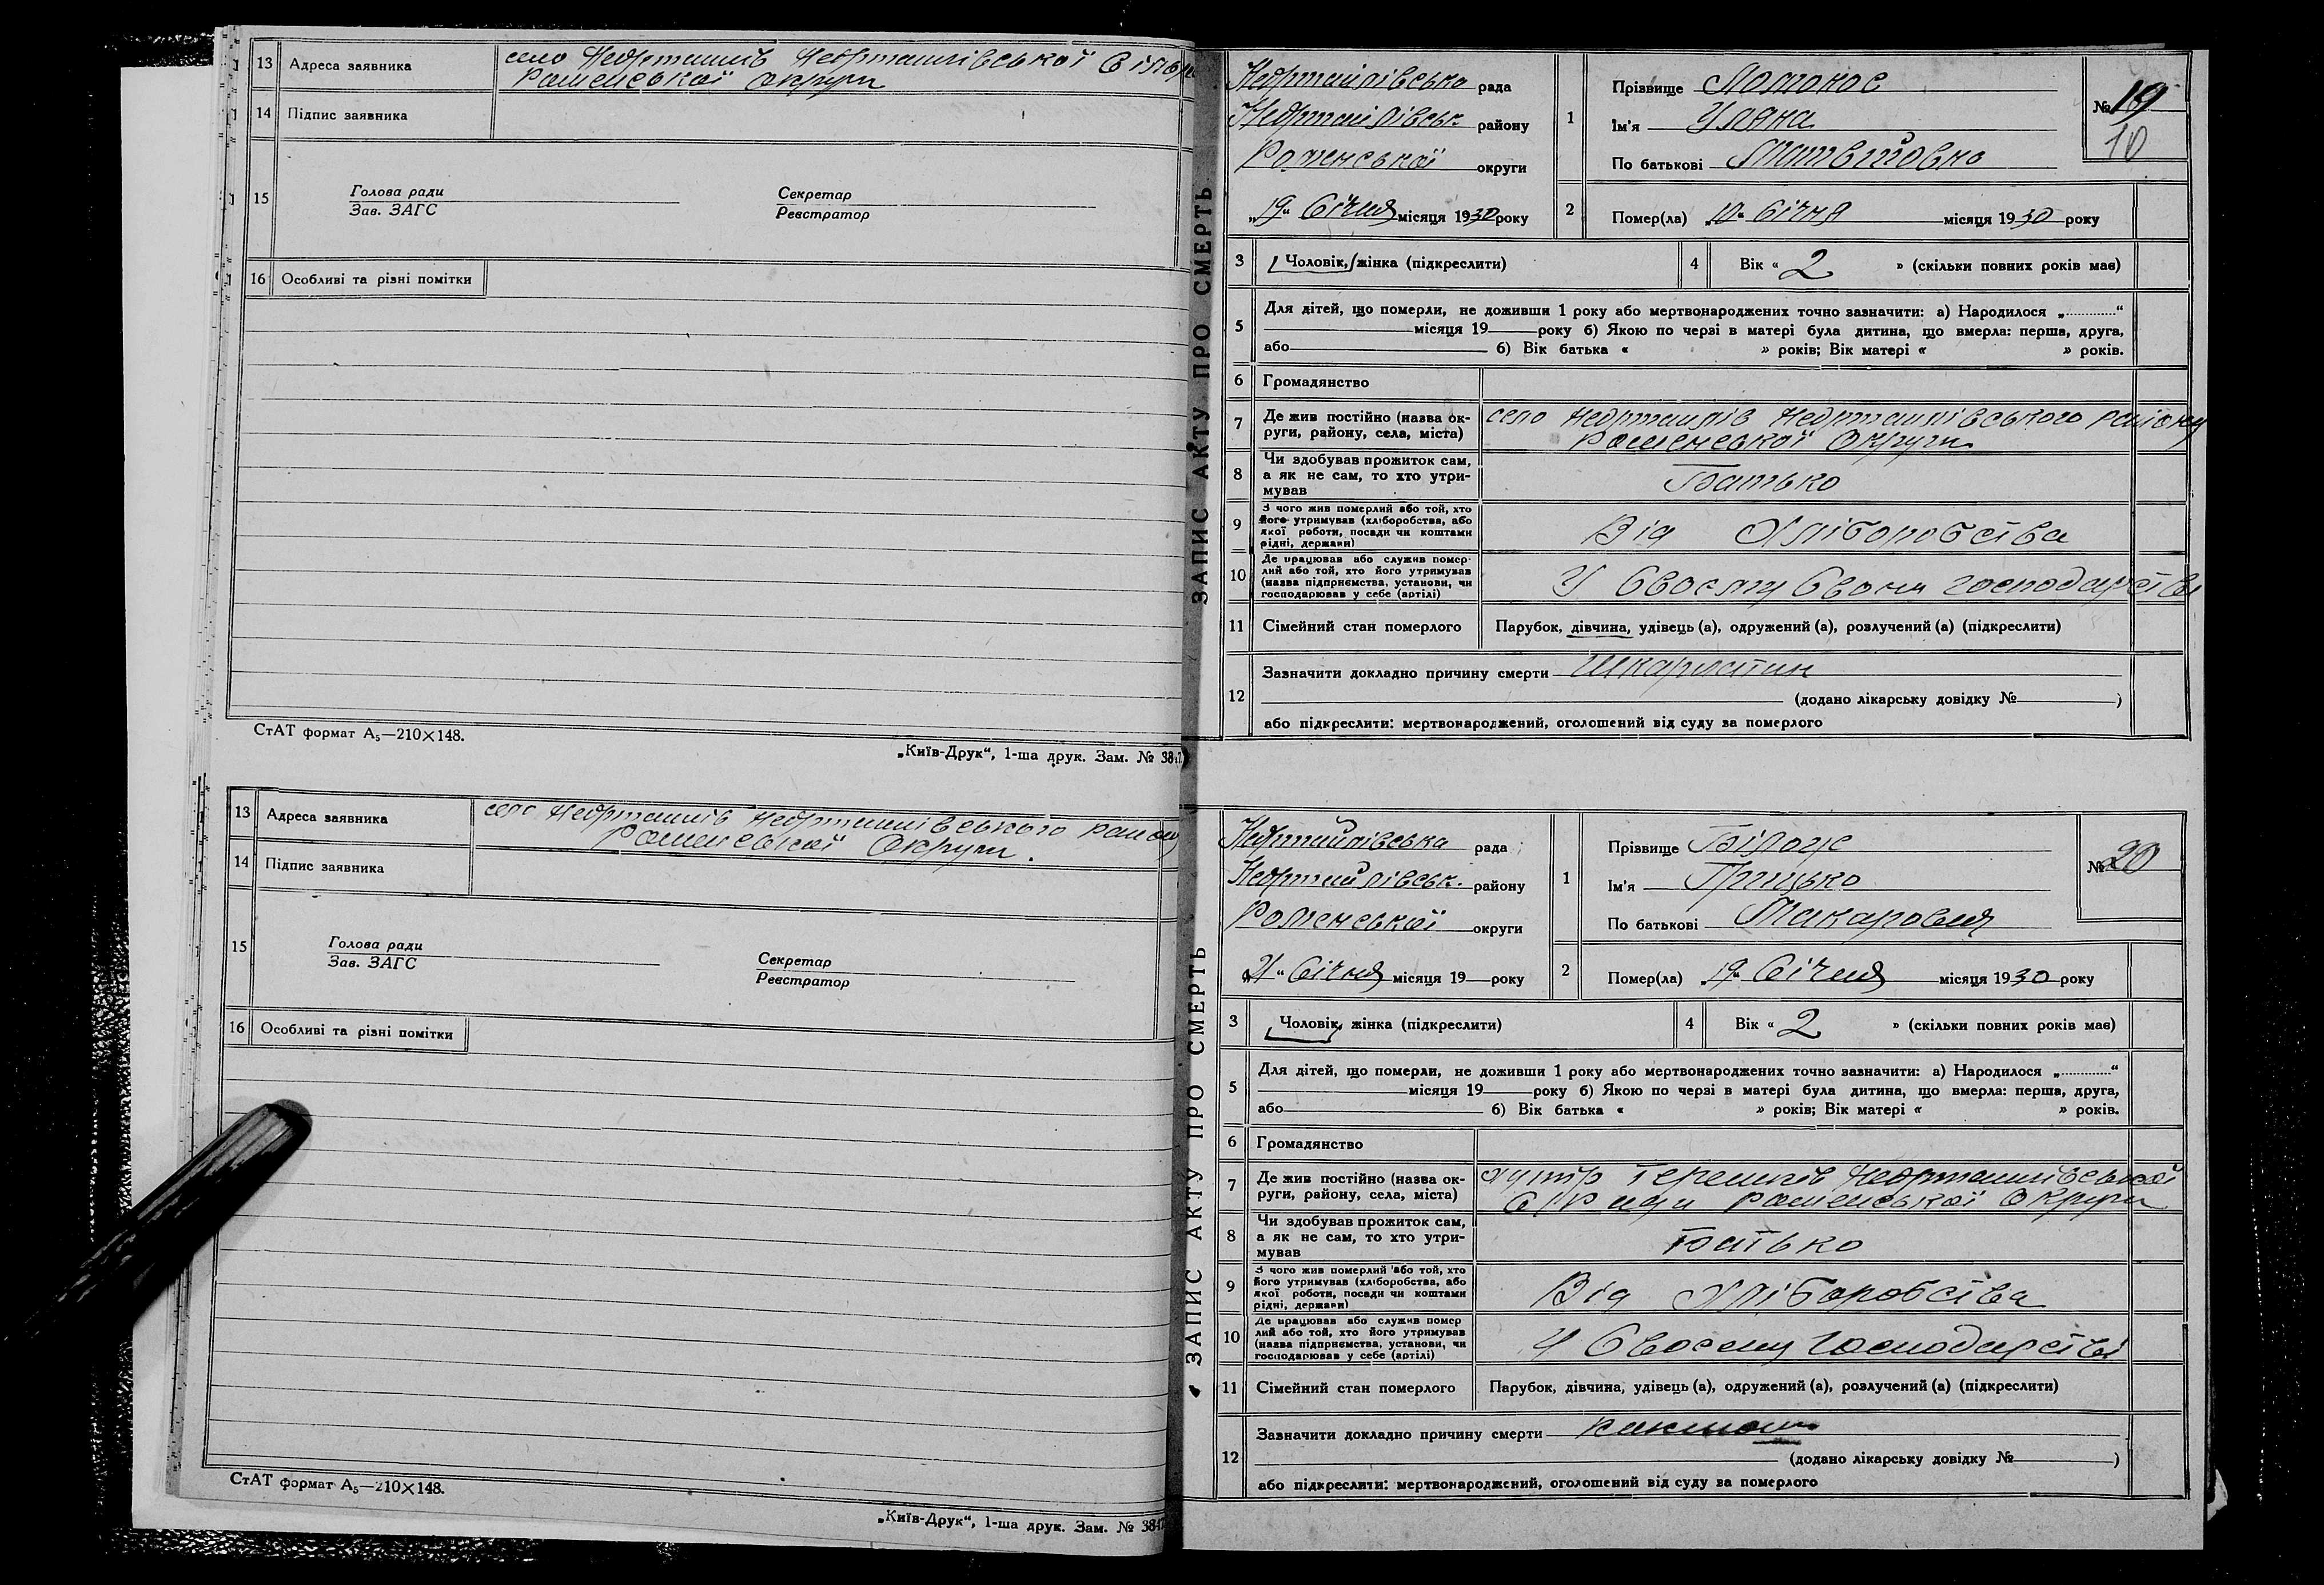 13 Адреса заявника село Недригайлів Недригайлівської
Роменської округи
14 Підпис заявника
15 Голова ради
Зав. ЗАГС
Секретар
Реєстратор
16 Особливі та різні помітки
СтАТ формат А₅—210×148.
„Київ-Друк“, 1-ша друк. Зам. №
13 Адреса заявника село Недригайлів Недригайлівського району
Роменської Округи.
14 Підпис заявника
15 Голова ради
Зав. ЗАГС
Секретар
Реєстратор
16 Особливі та різні помітки
СтАТ формат А₅—210×148.
„Київ-Друк“, 1-ша друк. Зам. №
ЗАПИС АКТУ ПРО СМЕРТЬ
Недригайлівська рада
Недригайлівськ. району
Роменської округи
„19“ Січня місяця 1930 року
1 Прізвище
Ім'я Уляна
По батькові Матвійовна
№ 19
10
2 Помер(ла) січня місяця 1930 року
3 Чоловік, жінка (підкреслити)
4 Вік « 2 » (скільки повних років має)
5 Для дітей, що померли, не доживши 1 року або мертвонароджених точно зазначити: а) Народилося „.............“
місяця 19 року б) Якою по черзі в матері була дитина, що вмерла: перша, друга,
або б) Вік батька « » років; Вік матері « » років.
6 Громадянство
7 Де жив постійно (назва ок-
руги, району, села, міста)
село Недригайлів Недригайлівського району
Роменської Округи
8 Чи здобував прожиток сам,
а як не сам, то хто утри-
мував
Батько
9 З чого жив померлий або той, хто
його утримував (хліборобства, або
якої роботи, посади чи коштами
рідні, держави)
Від Хліборобства
10 Де працював або служив помер-
лий або той, хто його утримував
(назва підприємства, установи, чи
господарював у себе (артілі)
У Своєму господарстві
11 Сімейний стан померлого Парубок, дівчина, удівець (а), одружений (а), розлучений (а) (підкреслити)
12 Зазначити докладно причину смерти
(додано лікарську довідку № )
або підкреслити: мертвонароджений, оголошений від суду за померлого
ЗАПИС АКТУ ПРО СМЕРТЬ
Недригайлівська рада
Недригайлівськ. району
Роменської округи
„21“ Січня місяця 19 року
1 Прізвище
Ім'я Грицько
По батькові Макарович
№ 20
2 Помер(ла) „19“ Січня місяця 1930 року
3 Чоловік, жінка (підкреслити)
4 Вік « 2 » (скільки повних років має)
5 Для дітей, що померли, не доживши 1 року або мертвонароджених точно зазначити: а) Народилося „.............“
місяця 19 року б) Якою по черзі в матері була дитина, що вмерла: перша, друга,
або б) Вік батька « » років; Вік матері « » років.
6 Громадянство
7 Де жив постійно (назва ок-
руги, району, села, міста)
хутір Недригайлівської
с/Ради Роменської Округи
8 Чи здобував прожиток сам,
а як не сам, то хто утри-
мував
Батько
9 З чого жив померлий або той, хто
його утримував (хліборобства, або
якої роботи, посади чи коштами
рідні, держави)
Від Хліборобства
10 Де працював або служив помер
лий або той, хто його утримував
(назва підприємства, установи, чи
господарював у себе (артілі)
У Своєму Господарстві
11 Сімейний стан померлого Парубок, дівчина, удівець (а), одружений (а), розлучений (а) (підкреслити)
12 Зазначити докладно причину смерти
(додано лікарську довідку № )
або підкреслити: мертвонароджений, оголошений від суду за померлого